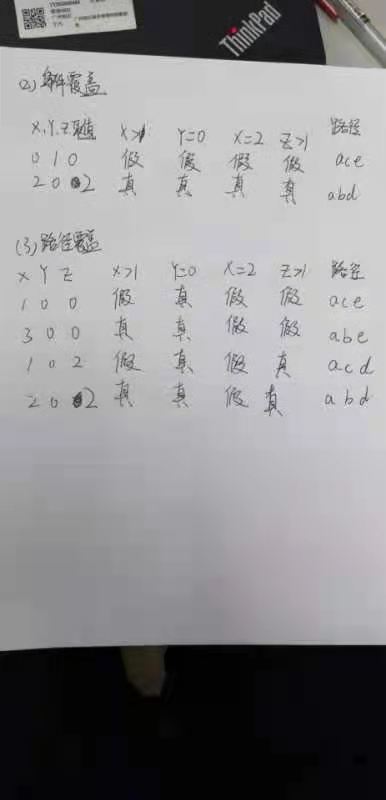 ThinkPad
(2) 条件覆盖
X,Y,Z取值 X>1 Y=0 X=2 Z>1 路径
0 1 0 假 假 假 假 ace
2 0 2 真 真 真 真 abd
(3) 路径覆盖
X Y Z X>1 Y=0 X=2 Z>1 路径
1 0 0 假 真 假 假 ace
3 0 0 真 真 假 假 abe
1 0 2 假 真 假 真 acd
2 0 2 真 真 假 真 abd